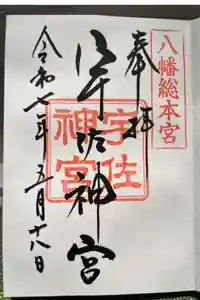 八幡総本宮
奉拝
宇佐神宮
宇佐神宮
令和七年 五月十八日